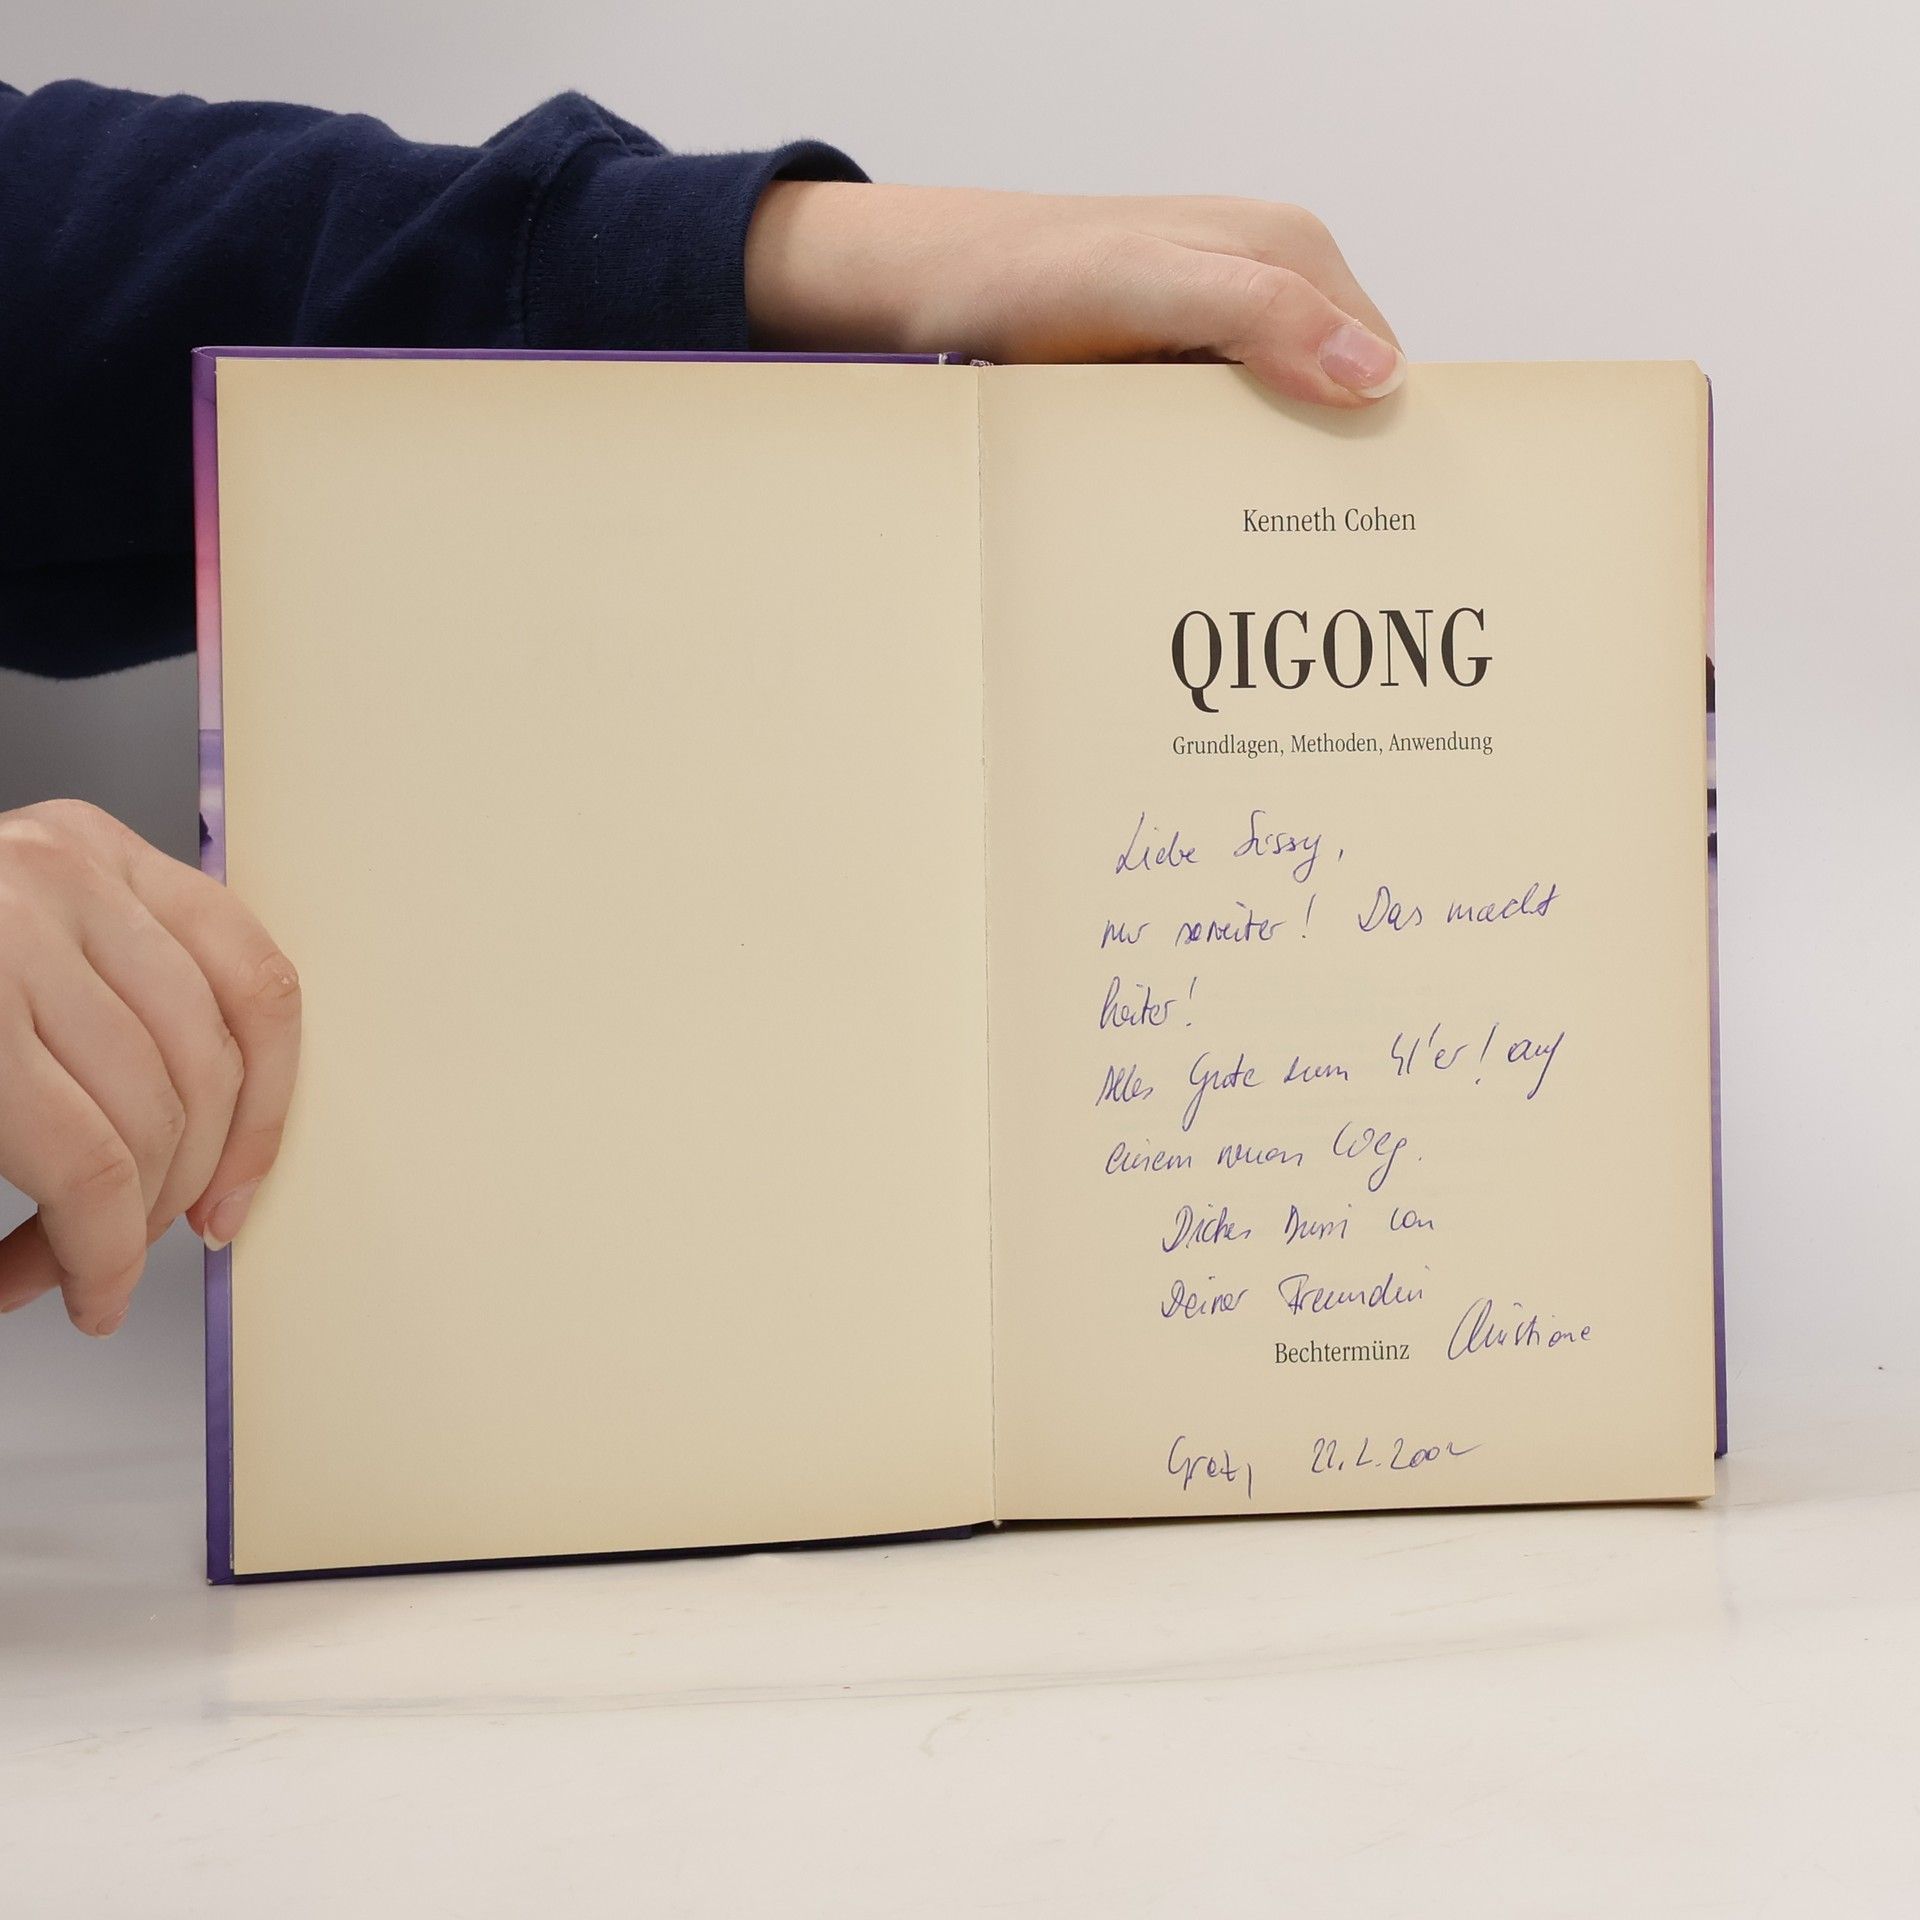 Kenneth Cohen
QIGONG
Grundlagen, Methoden, Anwendung
Liebe Sissy,
nur soweiter! Das macht
heiter!
Alles Gute zum 41'er! auf
einem neuen Weg.
Dickes Bussi von
Deiner Freundin
Christiane
Bechtermünz
Graz, 22.2.2002